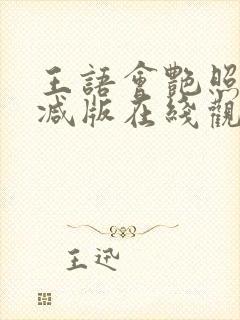 王語會艷照
減版在綫觀
王迅